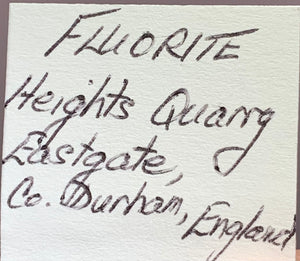 FLUORITE
Heights Quarry
Eastgate,
Co. Durham, England